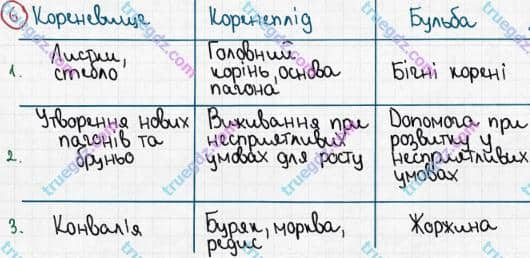 6 Кореневище Коренеплід Бульба
1. Листки, стебло
Головний корінь, основа пагона
Бічні корені
2. Утворення нових пагонів та бруньо
Виживання при несприятливих умовах для росту
Допомога при розвитку у несприятливих умовах
3. Конвалія
Буряк, морква, редис
Жоржина
truegdz.com